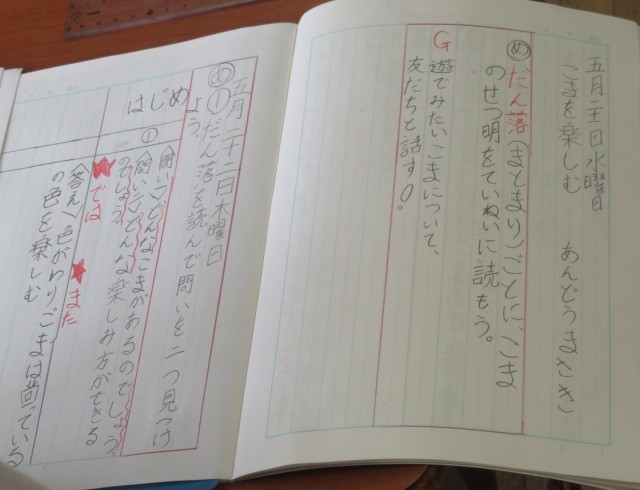 五月二十一日水曜日
こまを楽しむ　あんどうまさき
め だん落(まとまり)ごとに、こま
のせつ明をていねいに読もう。
G 遊でみたいこまについて、
友だちと話す〇。
五月二十二日木曜日
め ①だん落を読んで問いを二つ見つけ
よう。
はじめ
①
〈問い〉どんなこまがあるのでしょう。
〈問い〉どんな楽しみ方ができる
のでしょう。
★では ★また
答え〉色がわりごまは、回っている
の色を楽しむ